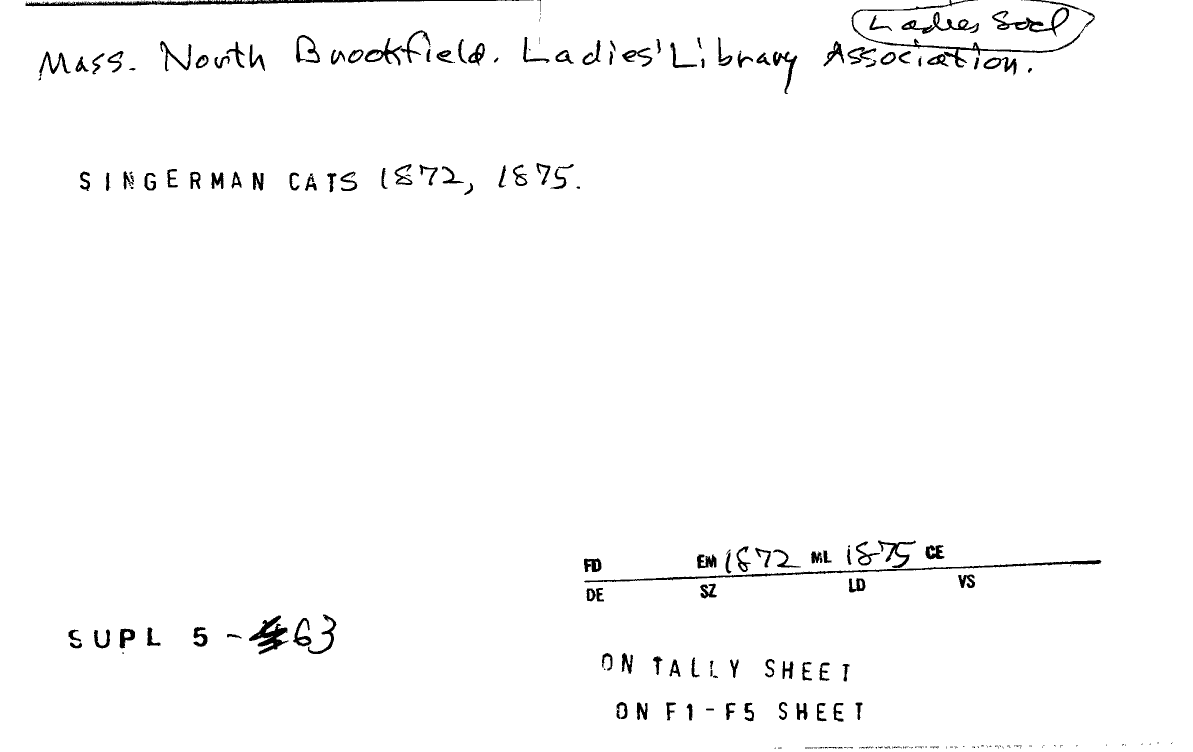 Ladies Socl
Mass. North Brookfield. Ladies' Library Association.
SINGERMAN CATS 1872, 1875.
FD EM 1872 ML 1875 CE
DE SZ LD VS
SUPL 5 - 63
ON TALLY SHEET
ON F1-F5 SHEET